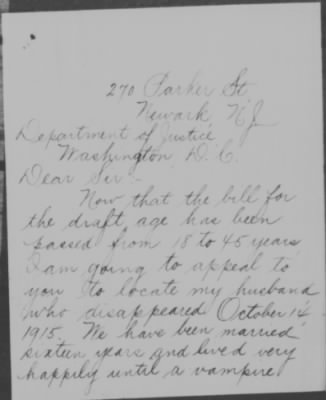 270 Parker St
Newark, N.J.
Department of Justice
Washington, D.C.
Dear Sir:-
Now that the bill for
the draft age has been
passed from 18 to 45 years
I am going to appeal to
you to locate my husband
who disappeared October 14
1915. We have been married
sixteen years and lived very
happily until a vampire